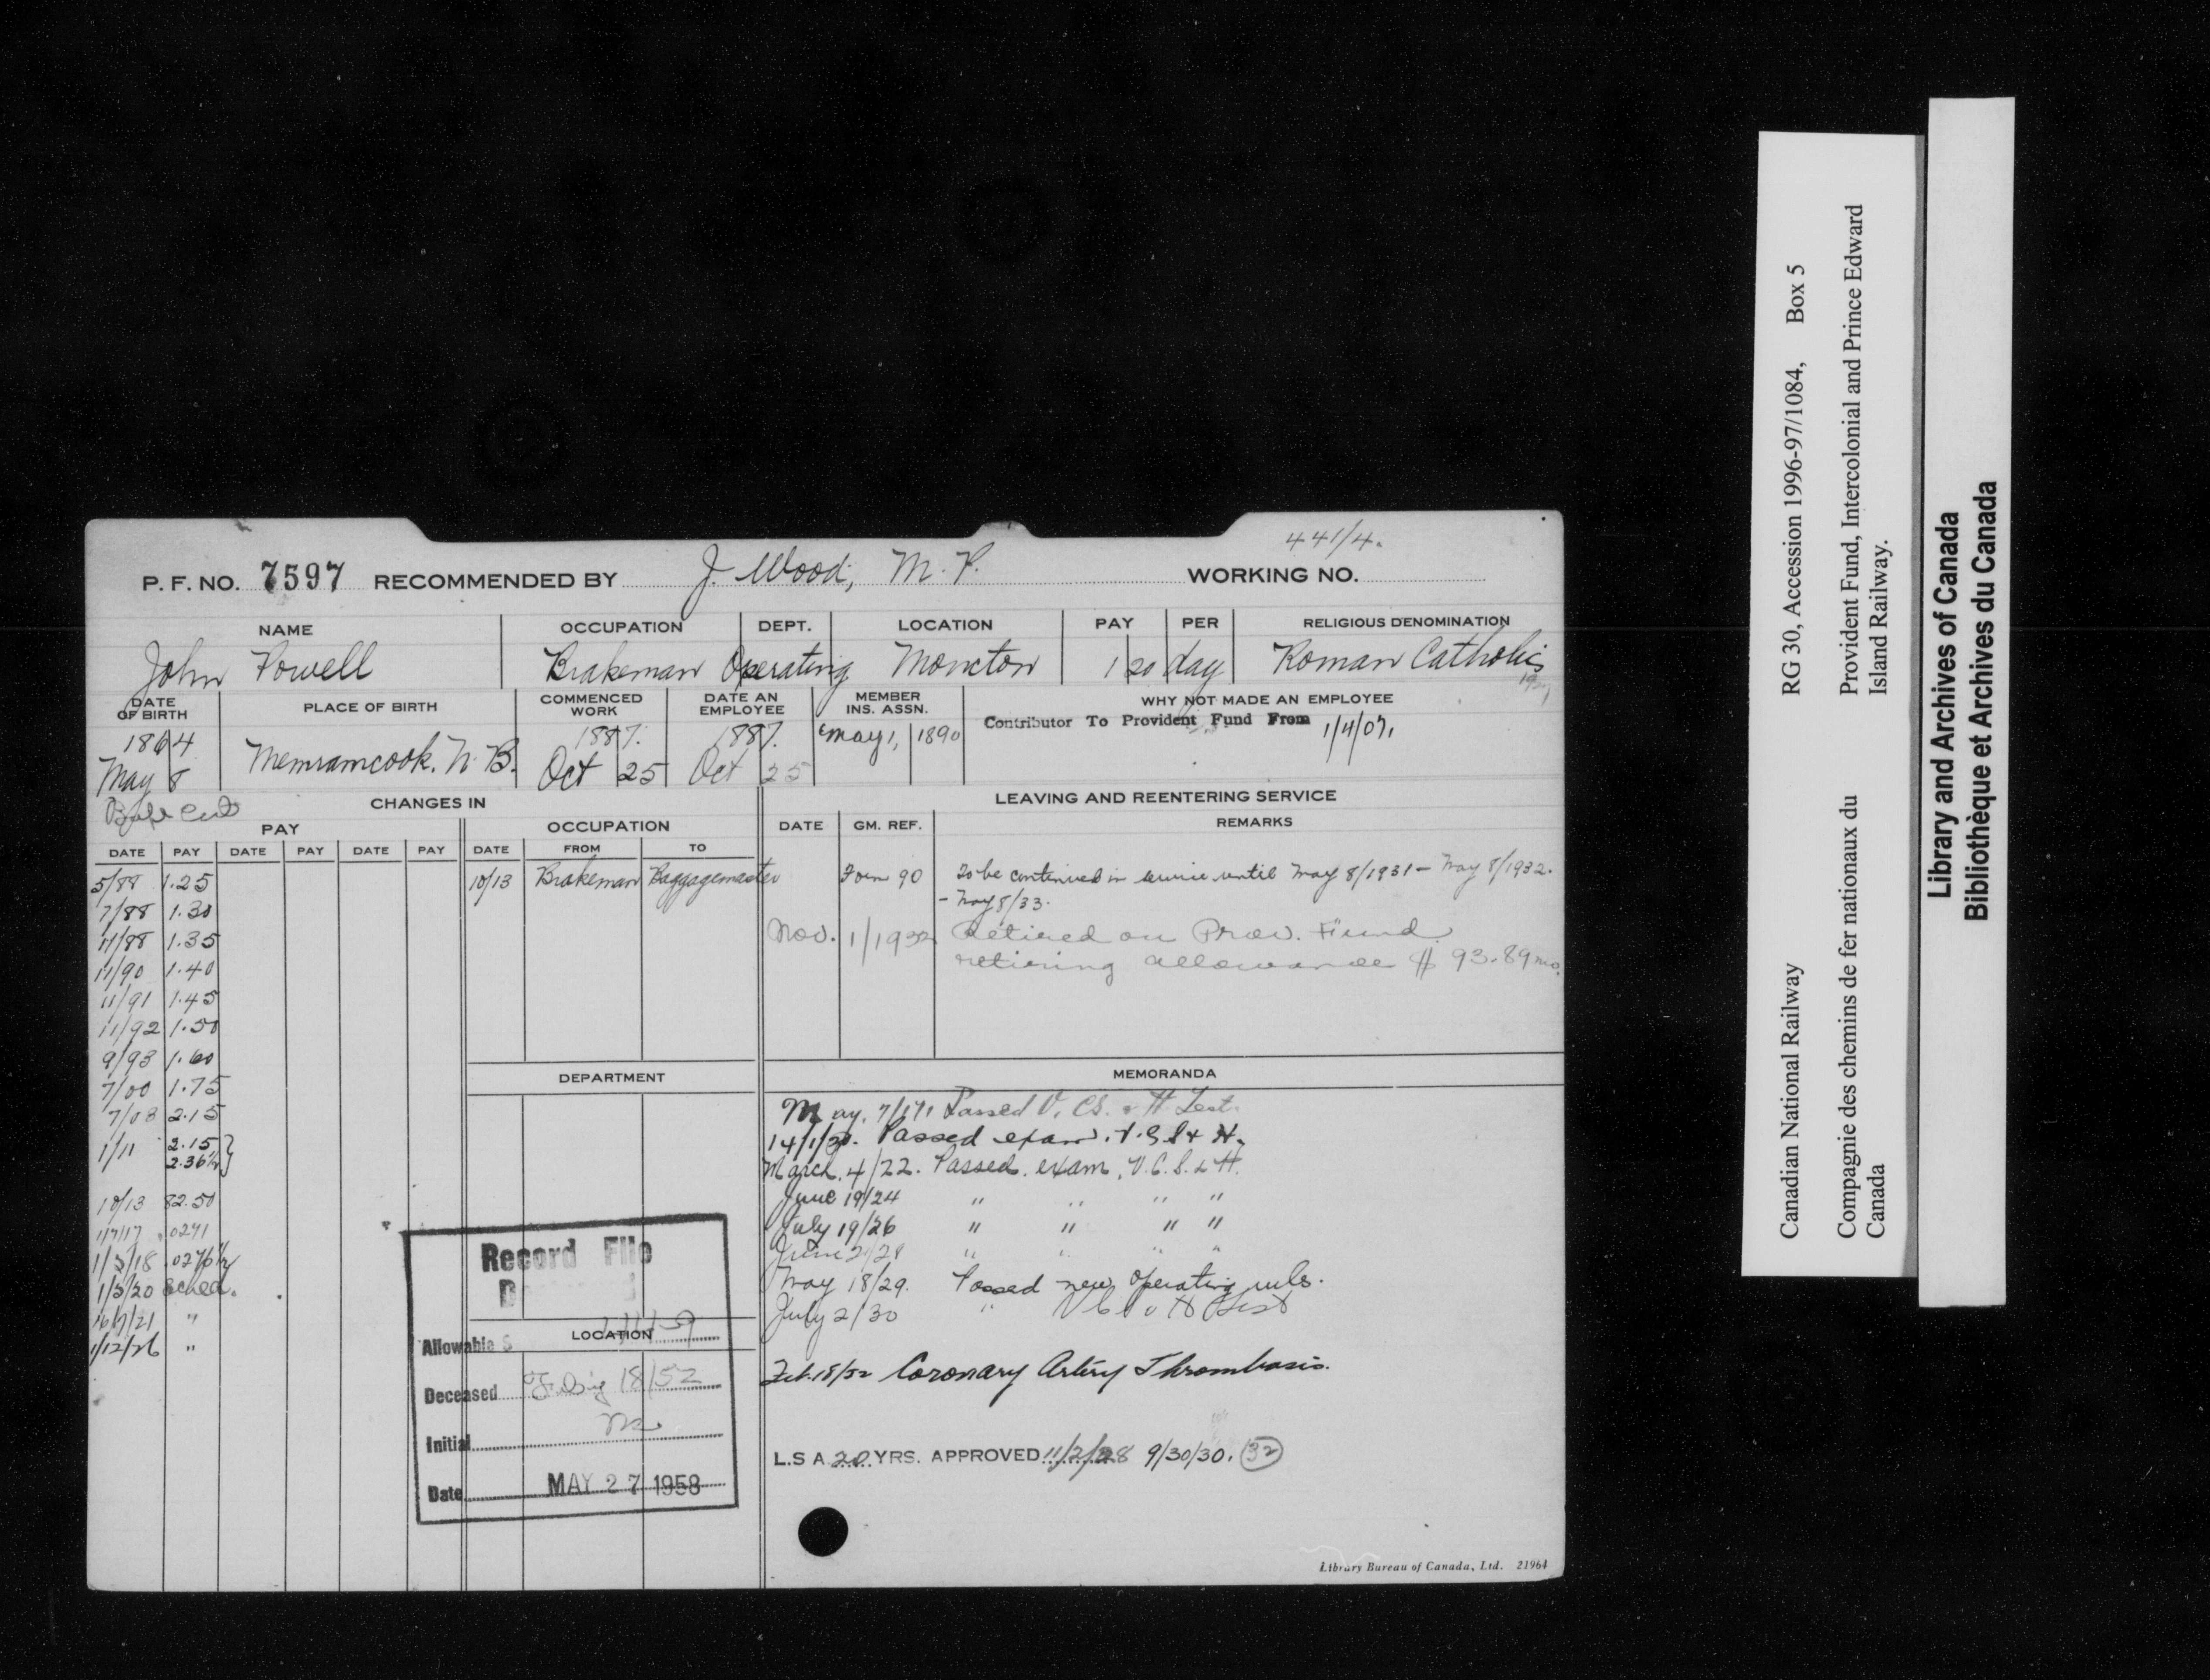 441/4.
P. F. NO. 7597 RECOMMENDED BY J. Wood, M. P. WORKING NO.
NAME OCCUPATION DEPT. LOCATION PAY PER RELIGIOUS DENOMINATION
John Powell Brakeman Operating Moncton 1 20 day Roman Catholic
DATE OF BIRTH PLACE OF BIRTH COMMENCED WORK DATE AN EMPLOYEE MEMBER INS. ASSN. WHY NOT MADE AN EMPLOYEE
Contributor To Provident Fund From 1/4/07,
1864 1887. 1887. May 1, 1890
May 8 Memramcook. N. B. Oct 25 Oct 25
CHANGES IN
LEAVING AND REENTERING SERVICE
PAY OCCUPATION DATE GM. REF. REMARKS
DATE PAY DATE PAY DATE PAY DATE FROM TO
5/88 1.25
7/88 1.30
11/88 1.35
11/90 1.40
11/91 1.45
11/92 1.50
9/93 1.60
7/00 1.75
7/08 2.15
1/11 2.15
2.36½
10/13 82.50
1/7/17 .0271
1/3/18 .0276½
1/5/20 Sched.
16/7/21 "
1/12/26 "
10/13 Brakeman Baggagemaster
Form 90 To be continued in service until May 8/1931 - May 8/1932.
- May 8/33.
Nov. 1/1932 Retired on Prov. Fund
retiring allowance $ 93.89 mo.
DEPARTMENT
MEMORANDA
May. 7/17, Passed V. CS. & H Test.
14/1/20. Passed exam. V.C.S. & H.
March. 4/22. Passed. exam. V.C.S. & H.
June 19/24 " " " "
July 19/26 " " " "
June 21/28 " " " "
May 18/29. Passed new operating rules.
July 2/30 " V C S & H Test
Feb. 18/52 Coronary Artery Thrombosis.
L.S A 20 YRS. APPROVED 11/2/28 9/30/30. 32
LOCATION
Record File
Allowable S
Deceased Feby 18/52
Initial
Date MAY 27 1958
Library Bureau of Canada, Ltd. 21964
Canadian National Railway RG 30, Accession 1996-97/1084, Box 5
Compagnie des chemins de fer nationaux du Canada Provident Fund, Intercolonial and Prince Edward Island Railway.
Library and Archives of Canada
Bibliothèque et Archives du Canada